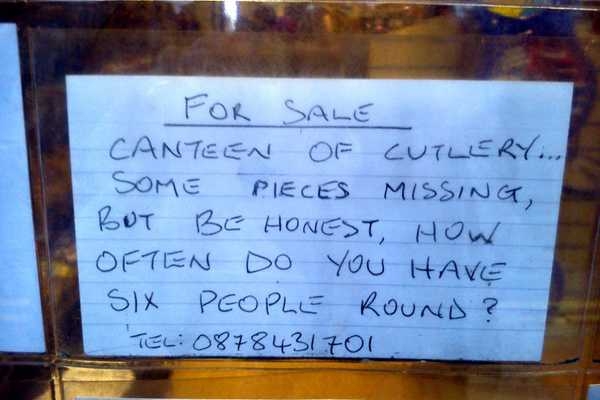 FOR SALE
CANTEEN OF CUTLERY...
SOME PIECES MISSING,
BUT BE HONEST, HOW
OFTEN DO YOU HAVE
SIX PEOPLE ROUND?
TEL: 0878431701